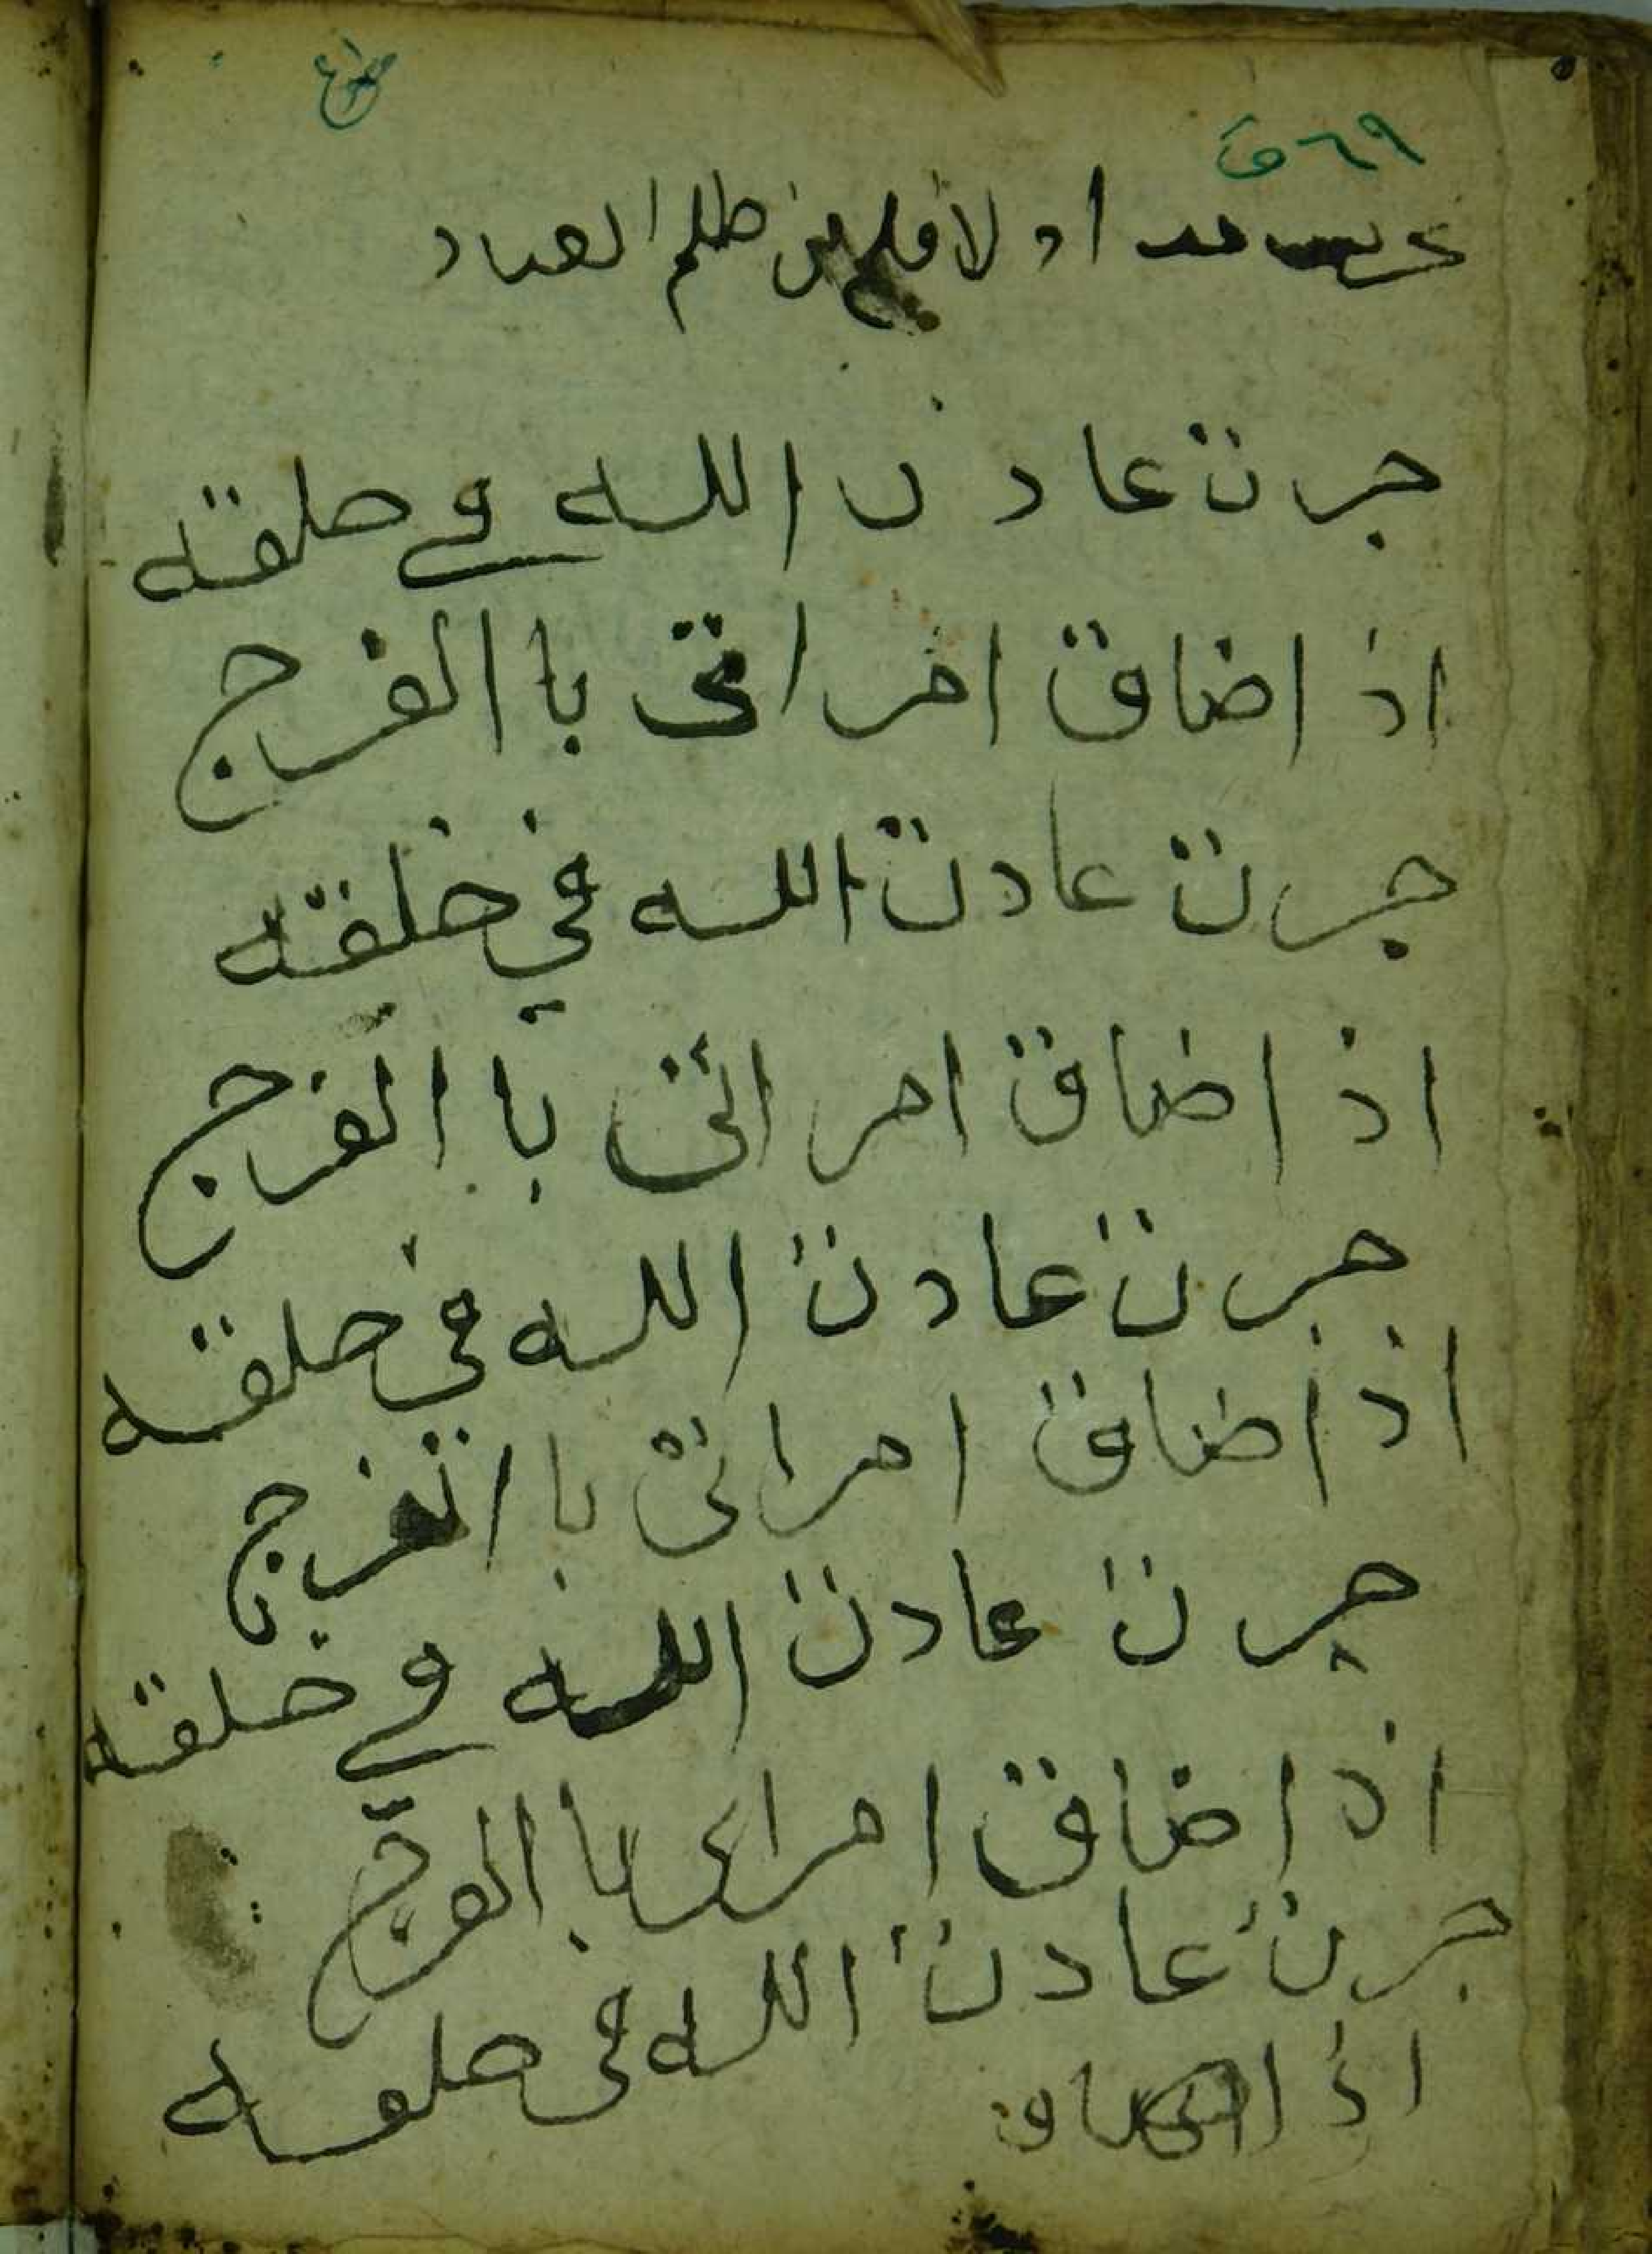 ٦٩ ق
لا فلح من ظلم العباد
جرت عادت الله في خلقته
اذ اضاق امر اتى با الفرج
جرت عادت الله في خلقته
اذ اضاق امر اتى با الفرج
جرت عادت الله في خلقته
اذ اضاق امر اتى با الفرج
جرت عادت الله في خلقته
اذ اضاق امر اتى با الفرج
جرت عادت الله في خلقته
اذ